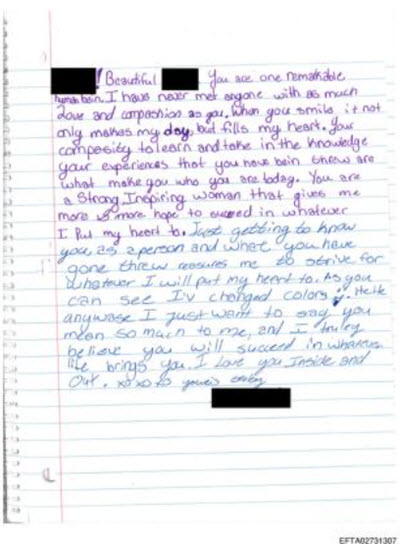 ! Beautiful You are one remarkable
human bein. I have never met anyone with as much
Love and compashion as you. When you smile it not
only makes my day, but fills my heart. Your
compasity to learn and take in the knowledge
your experiences that you have bein threw are
what make you who you are today. You are
a Strong, Inspiring woman that gives me
more &more hope to succeed in whatever
I Put my heart to. Just getting to know
you, as a person and what you have
gone threw reasures me to strive for
whatever I will put my heart to. As you
can see I'v changed colors . HeHe
anywase I just want to say you
mean so much to me, and I truley
believe you will succeed in whatever
life brings you. I Love you Inside and
Out. xoxoxo
EFTA02731307